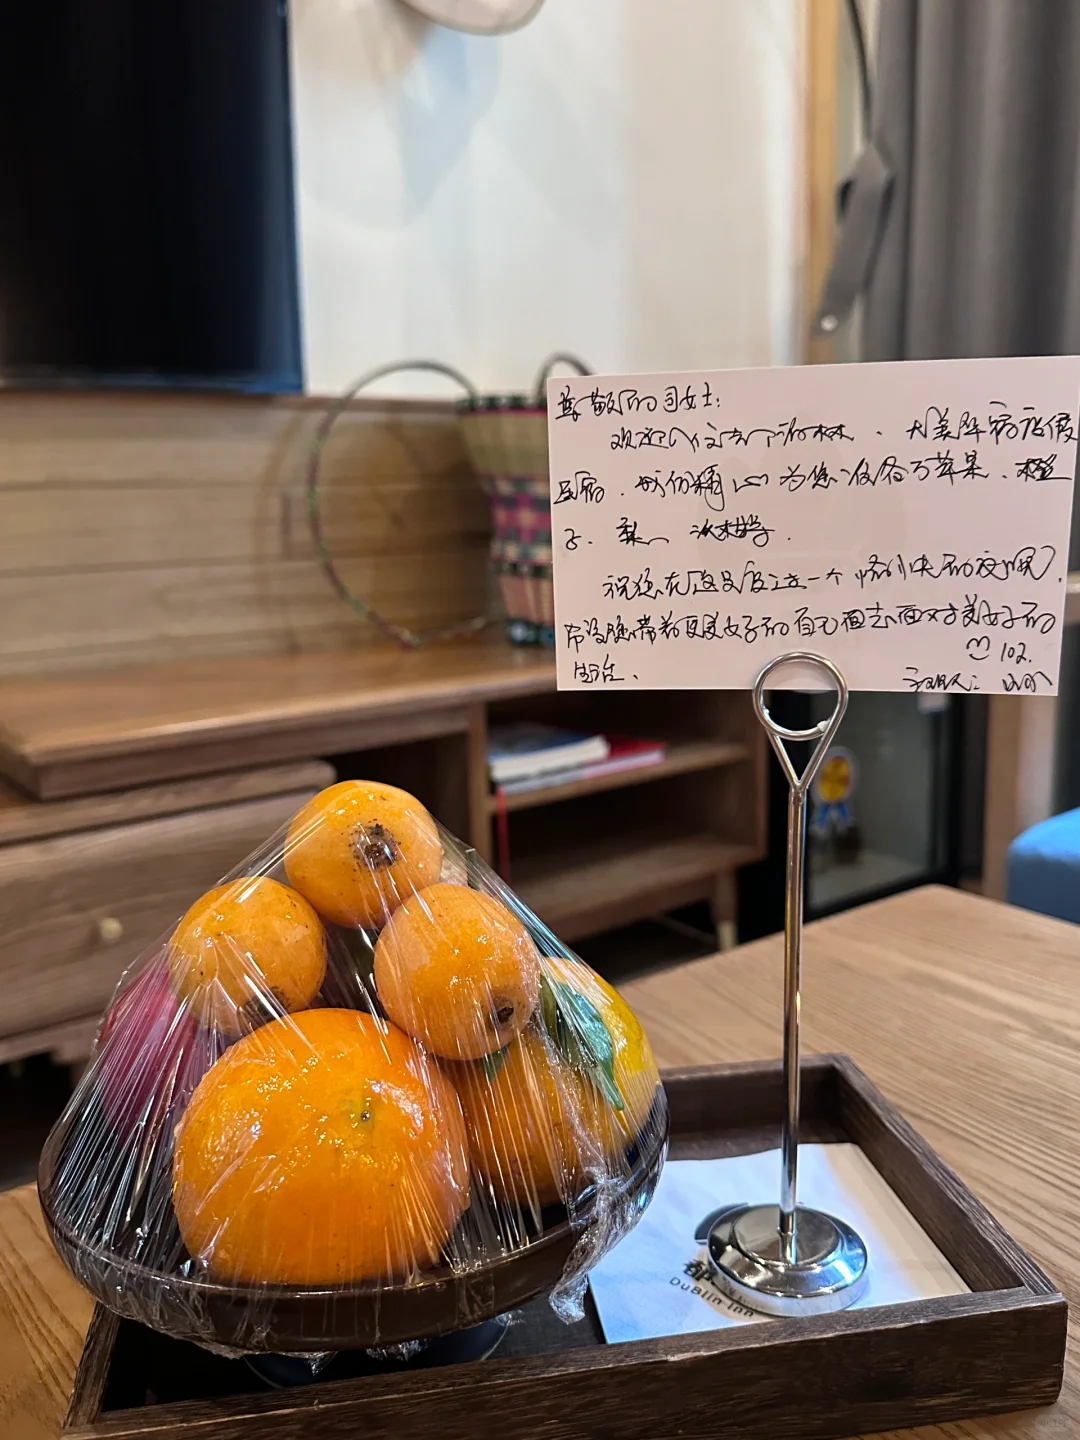 尊敬的司女士:
欢迎入住都市丽林、大美华宿度假
民宿、我们精心为您准备了苹果、橙
子、梨、沃柑等.
祝您在这里度过一个愉快的夜晚,
希望您带着更美好的自己面去面对美好的
生活、
102.
DuBlin Inn